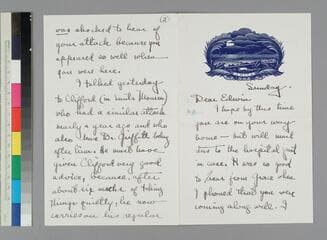 Sunday.
Dear Edwin
I hope by this time
you are on your way
home — but will send
this to the hospital just
in case. It was so good
to hear from Grace when
I phoned that you were
coming along well. I
(2)
was shocked to hear of
your attack because you
appeared so well when
you were here.
I talked yesterday
to Clifford (in
who had a similar attack
nearly a year ago and who
also has Dr. Griffith
after him. He must have
given Clifford very good
advice, because, after
about six weeks of taking
things quietly, he now
carries on his regular